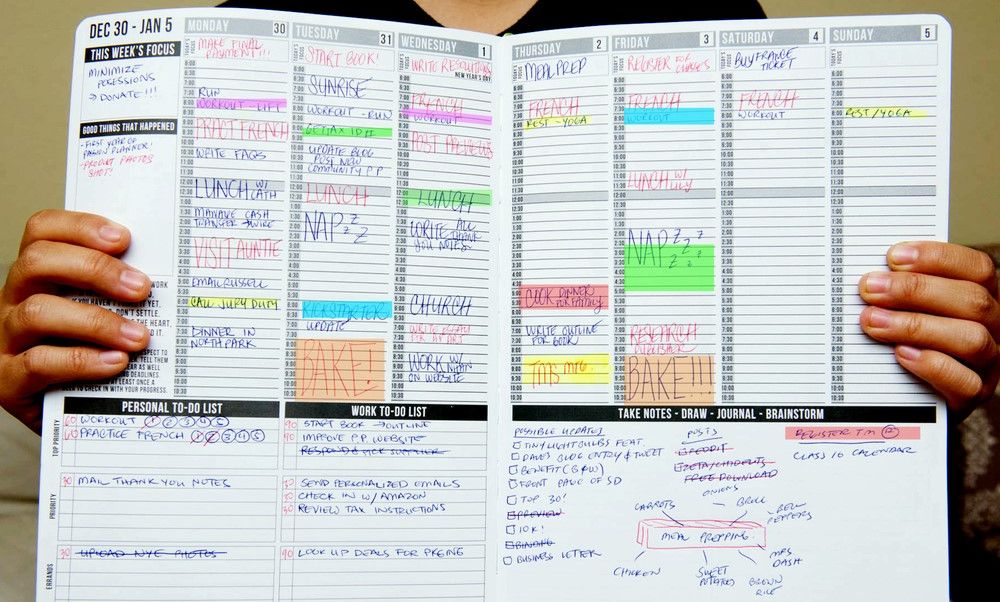 DEC 30 - JAN 5
THIS WEEK'S FOCUS
MINIMIZE
→ DONATE!!!
GOOD THINGS THAT HAPPENED
- FIRST YEAR OF
PASSION PLANNER!
- PRODUCT PHOTOS
SHOT!
MONDAY 30
TODAY'S FOCUS
MAKE FINAL
PAYMENT!!!
RUN
WORKOUT - LIFT
PRACT FRENCH
WRITE FAQS
LUNCH W/
CATH
CASH
WIRE
VISIT AUNTIE
EMAIL RUSSELL
CALL JURY DUTY
DINNER IN
NORTH PARK
TUESDAY 31
TODAY'S FOCUS
START BOOK!
SUNRISE
WORKOUT - RUN
GET TAX ID #
UPDATE BLOG
POST NEW
COMMUNITY P.P
LUNCH
NAP z z z
KICKSTARTER
UPDATE
BAKE!
WEDNESDAY 1
TODAY'S FOCUS
WRITE RESOLUTIONS
NEW YEAR'S DAY
FRENCH
WORKOUT
POST
LUNCH
WRITE ALL
THANK
YOU NOTES
CHURCH
WRITE ESSAY
WORK W/
ON WEBSITE
THURSDAY 2
TODAY'S FOCUS
MEAL PREP
FRENCH
REST - YOGA
COOK DINNER
FOR FAMILY
WRITE OUTLINE
FOR BOOK
TMS MTG.
FRIDAY 3
TODAY'S FOCUS
REGISTER FOR
CLASSES
FRENCH
WORKOUT
LUNCH W/
LILY
NAP z z z z z z
RESEARCH
PUBLISHER
BAKE!!!
SATURDAY 4
TODAY'S FOCUS
BUY FRANCE
TICKET
FRENCH
WORKOUT
SUNDAY 5
TODAY'S FOCUS
REST/YOGA
PERSONAL TO-DO LIST
TOP PRIORITY
60 WORKOUT 1 2 3 4 5
60 PRACTICE FRENCH 1 2 3 4 5
PRIORITY
30 MAIL THANK YOU NOTES
ERRANDS
30 UPLOAD NYE PHOTOS
WORK TO-DO LIST
90 START BOOK → OUTLINE
90 IMPROVE P.P. WEBSITE
RESPOND & PICK SUPPLIER
30 SEND PERSONALIZED EMAILS
30 CHECK IN W/ AMAZON
30 REVIEW TAX INSTRUCTIONS
90 LOOK UP DEALS FOR
TAKE NOTES - DRAW - JOURNAL - BRAINSTORM
POSSIBLE UPDATES
TINY LIGHTBULBS FEAT.
DAVES BLOG ENTRY & TWEET
BENEFIT (B&W)
FRONT PAGE OF SD
TOP 30!
PREVIEW
10K!
BINDING
BUSINESS LETTER
POSTS
REDDIT
FREE DOWNLOAD
REGISTER TM ®
CLASS 16 CALENDAR
MEAL PREPPING
CARROTS
ONIONS
BROLL
BELL
PEPPERS
MRS
DASH
BROWN
RICE
SWEET
POTATOES
CHICKEN